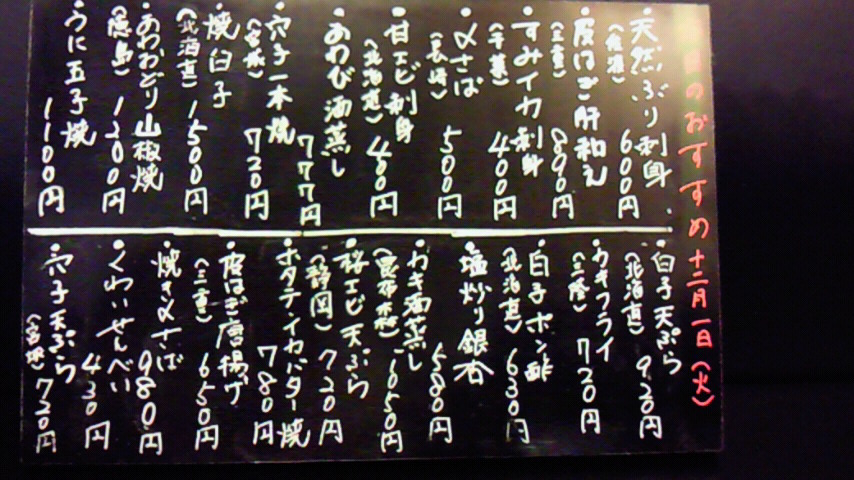 のおすすめ 十二月一日(火)
・天然ぶり刺身
(佐渡) 600円
・皮はぎ肝和え
(三重) 890円
・すみイカ刺身
(千葉) 400円
・〆さば
(長崎) 500円
・甘エビ刺身
(北海道) 480円
・あわび酒蒸し
777円
・穴子一本焼
(宮城) 720円
・焼白子
(北海道) 1500円
・あわおどり山椒焼
(徳島) 1200円
・うに玉子焼
1100円
・白子天ぷら
(北海道) 920円
・カキフライ
(三陸) 720円
・白子ポン酢
(北海道) 630円
・塩炒り銀杏
580円
・カキ酒蒸し
650円
・桜エビ天ぷら
(静岡) 720円
・ホタテイカバター焼
780円
・皮はぎ唐揚げ
(三重) 650円
・焼き〆さば
980円
・くわいせんべい
430円
・穴子天ぷら
(宮城) 720円